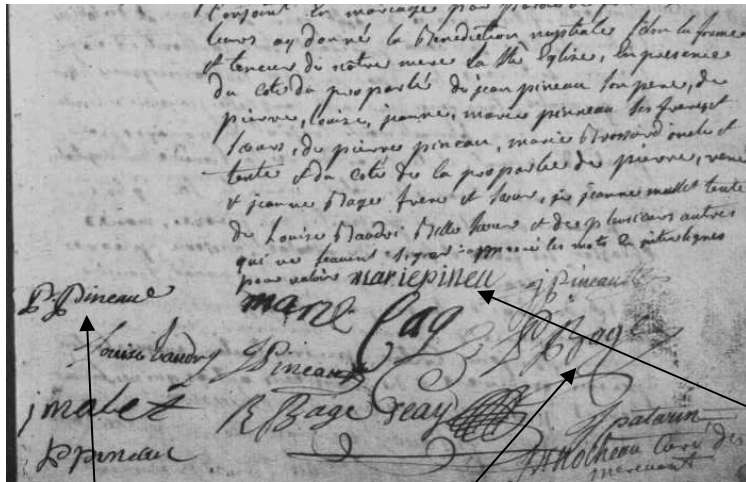 conjoint en mariage par
leurs ay donné la Benediction nuptiale selon la forme
et teneur de notre mere la Ste Eglise, en presence
du coté du proparlé de jean pineau son pere, de
pierre, Louise, jeanne, marie pinneau ses freres et
sœurs, de pierre pineau, marie Brossard oncle et
tente et du coté de la proparlée de pierre, rené
et jeanne Bage frere et sœur, de jeanne mallet tente
de Louise Baudri Belle sœur et de plusieurs autres
qui ne scavent signer approuvé les mots en interlignes
pour valoir mariepineu j pineau
P. Pineau
marie Cag P Bage
Louise baudry J Pineau
j malet R Bage Jean
J patarin
P pineau
Curé de
mervent